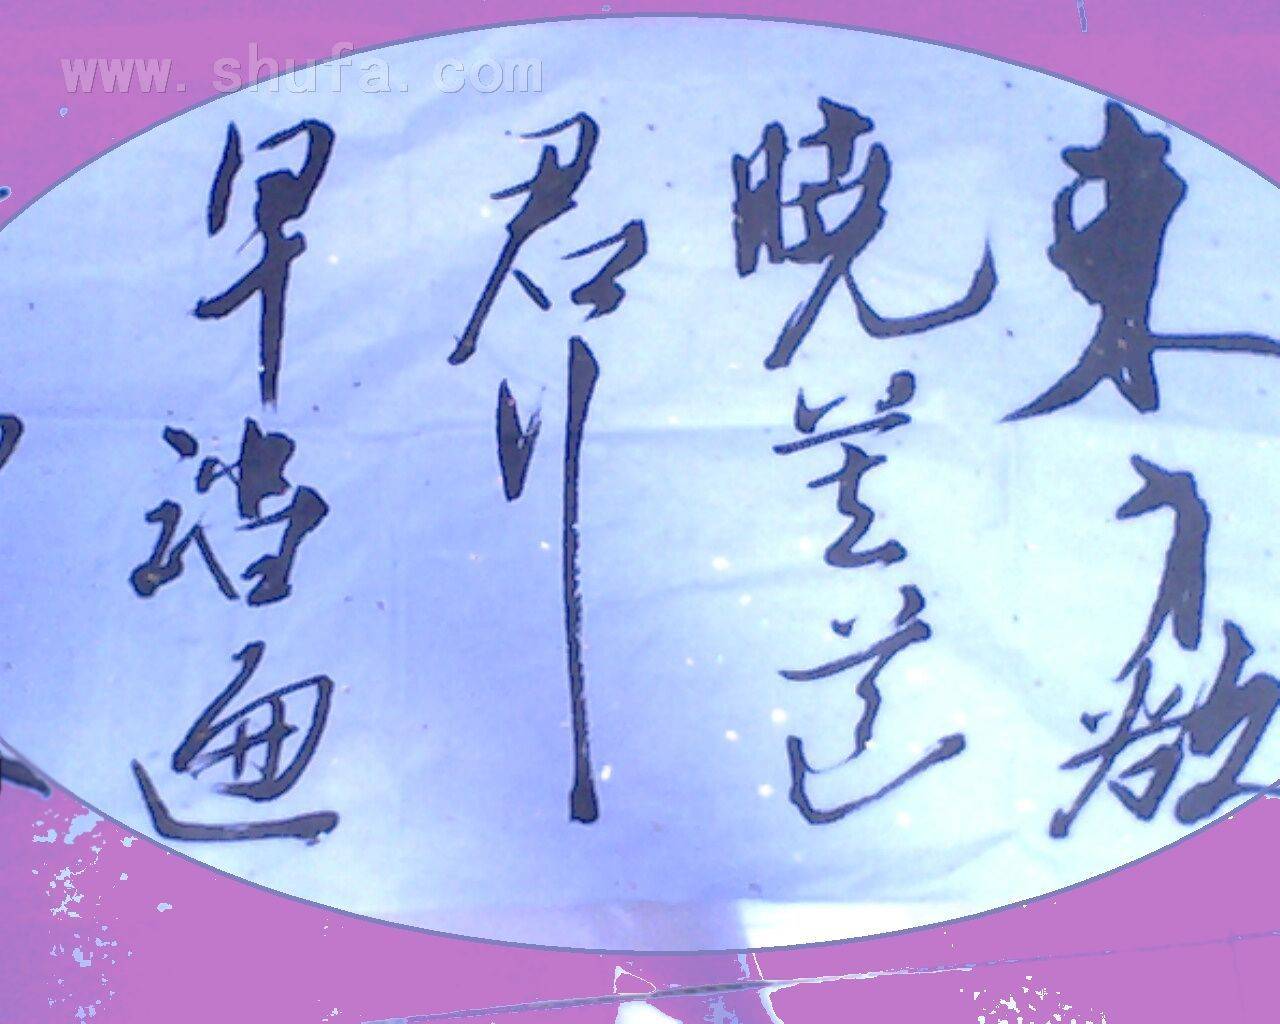 www.shufa.com
東方欲
晓莫道
君行
早踏遍